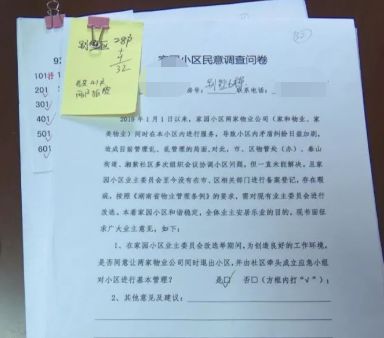 别墅区 28户
+4
32
家园小区民意调查问卷
房号：别墅6栋 联系电话：
101
201
301
401
501
601
2019 年 1 月 1 日以来，家园小区两家物业公司（家和物业、家
美物业）同时在本小区内进行服务，导致小区内矛盾纠纷日益加剧，
造成目前管理乱、乱管理的局面。对此，市、区物管处（办）、泰山
街道、湘紫社区多次组织会议协调小区问题，但一直未能解决。且家
园小区业主委员会至今没有在市、区相关部门进行备案登记，存在瑕
疵，按照《湖南省物业管理条例》的要求，需对现有业主委员会进行
改选。本着家园小区和谐稳定，全体业主安居乐业的目的，现书面征
求广大业主意见，如下：
1、在家园小区业主委员会改选举期间，为创造良好的工作环境，
是否同意让两家物业公司同时退出小区，并由社区牵头成立应急小组
对小区进行基本管理？ 是☑ 否□（方框内打“√”）；
2、其他意见及建议：